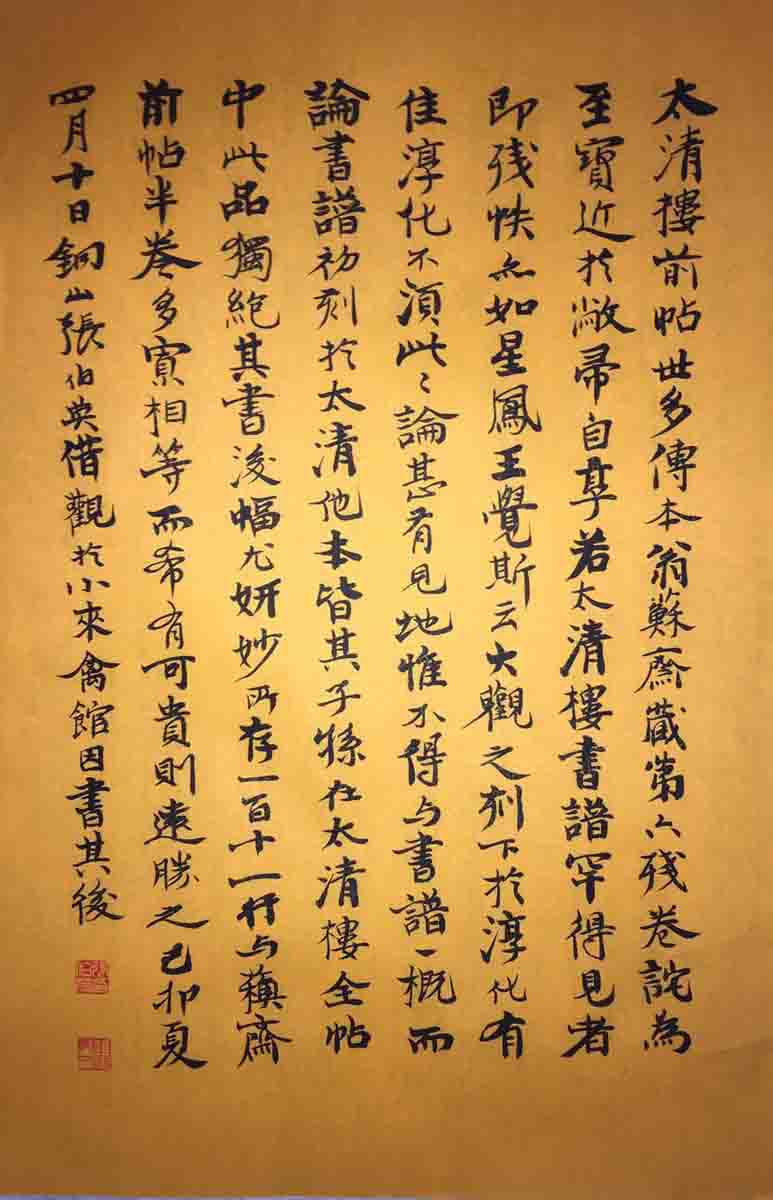 太清樓前帖世多傳本翁蘇齋藏第六残卷詫為
至寶近於敝帚自享若太清樓書譜罕得見者
即残帙亦如星鳳王覺斯云大觀之刻下於淳化有
佳淳化不須此〻論甚有見地惟不得与書譜一概而
論書譜初刻於太清他本皆其子孫在太清樓全帖
中此品獨絕其書後幅尤妍妙所存一百十一行与蘇齋
前帖半卷多寡相等而希有可貴則遠勝之己卯夏
四月十日銅山張伯英借觀於小來禽館因書其後